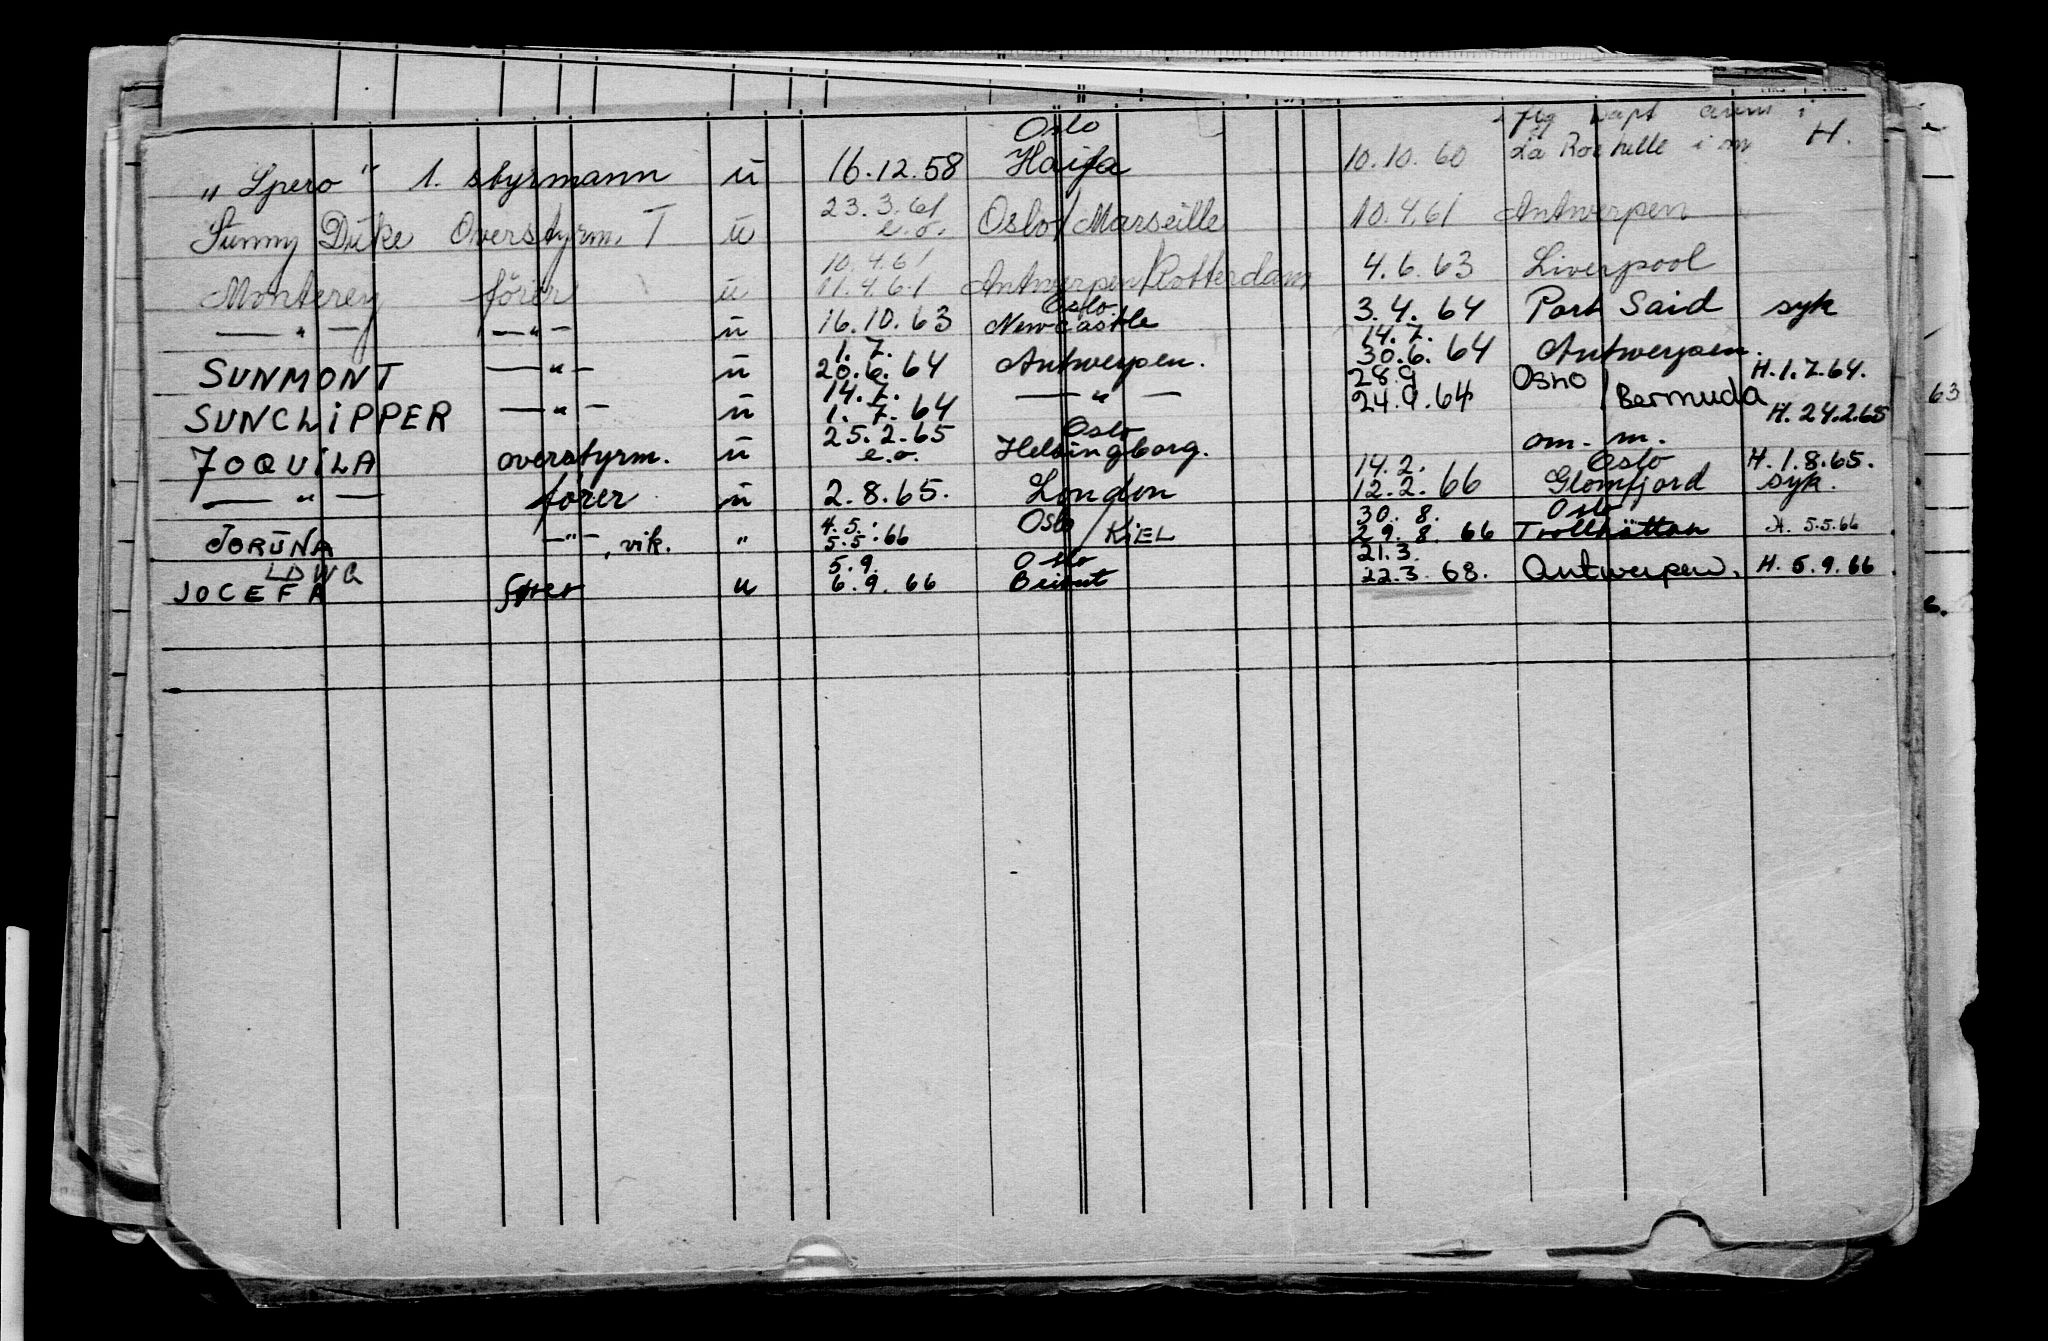 Oslo
„ Spero " 1. styrmann u 16.12.58 Haifa 10.10.60 La Rochelle i m H.
23.3.61
Sunny Duke Overstyrm. I u e.o. Oslo/Marseille 10.4.61 Antwerpen
10.4.61
Monterey fører u 11.4.61 Antwerpen/Rotterdam 4.6.63 Liverpool
Oslo
— " — — " — u 16.10.63 Newcastle 3.4.64 Port Said syk
1.7. 14.7.
SUNMONT — " — u 20.6.64 Antwerpen. 30.6.64 Antwerpen. H.1.7.64.
14.7. 28.9
SUNCLIPPER — " — u 1.7.64 — " — 24.9.64 Oslo / Bermuda H.24.2.65
25.2.65 Oslo
JOQUILA overstyrm. u e.o. Helsingborg. om. m.
14.2. Oslo H.1.8.65.
— " — fører u 2.8.65. London 12.2.66 Glomfjord syk.
4.5. Oslo 30.8. Oslo
JORUNA — " — , vik. " 5.5.66 / KiEL 29.8.66 Trollhättan H. 5.5.66
LDWG 5.9. Oslo 21.3.
JOCEFA fører u 6.9.66 Beirut 22.3.68. Antwerpen. H. 5.9.66
63